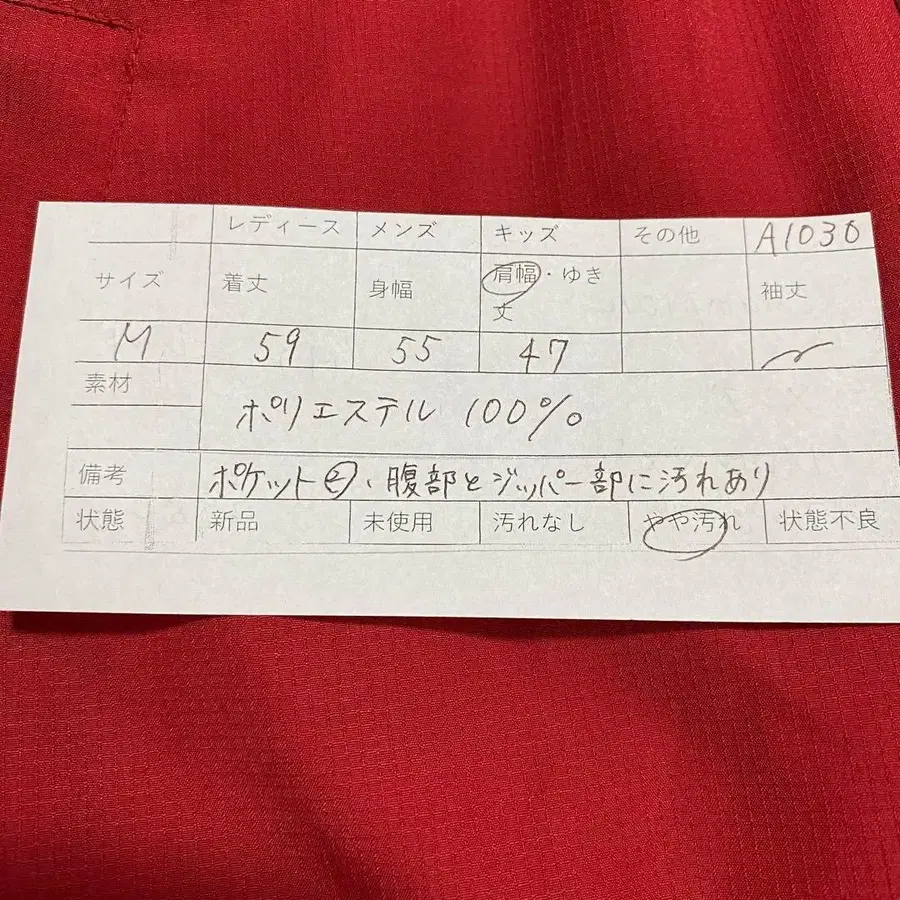 レディース メンズ キッズ その他 A1030
サイズ 着丈 身幅 肩幅・ゆき丈 袖丈
M 59 55 47
素材 ポリエステル 100%
備考 ポケット②、腹部とジッパー部に汚れあり
状態 新品 未使用 汚れなし やや汚れ 状態不良